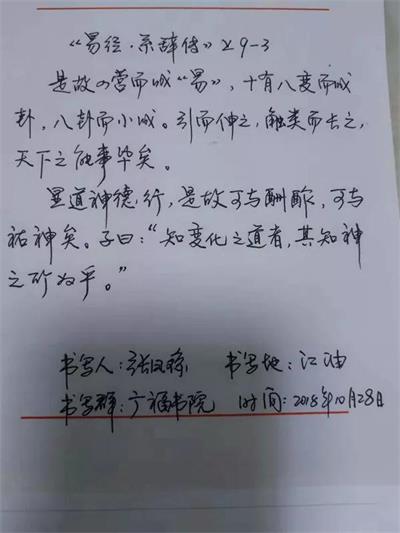 《易经·系辞传》上9-3
是故四营而成“易”，十有八变而成
卦，八卦而小成。引而伸之，触类而长之，
天下之能事毕矣。
显道神德行，是故可与酬酢，可与
祐神矣。子曰：“知变化之道者，其知神
之所为乎。”
书写人： 书写地：江油
书写群：广福书院 时间：2018年10月28日